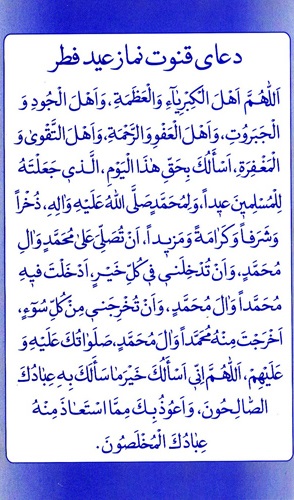 دعای قنوت نماز عید فطر
اَللّٰهُمَّ اَهْلَ الْکِبْرِیٰآءِ وَالْعَظَمَةِ، وَاَهْلَ الْجُودِ وَ
الْجَبَرُوتِ، وَاَهْلَ الْعَفْوِ وَالرَّحْمَةِ، وَاَهْلَ التَّقْویٰ وَ
الْمَغْفِرَةِ، اَسْأَلُکَ بِحَقِّ هٰذَا الْیَوْمِ، الَّذی جَعَلْتَهُ
لِلْمُسْلِمینَ عیداً، وَلِمُحَمَّدٍ صَلَّی اللهُ عَلَیْهِ وَالِهِ، ذُخْراً
وَشَرَفاً وَکَرٰامَةً وَمَزیداً، اَنْ تُصَلِّیَ عَلیٰ مُحَمَّدٍ وَالِ
مُحَمَّدٍ، وَاَنْ تُدْخِلَنی فی کُلِّ خَیْرٍ، اَدْخَلْتَ فیهِ
مُحَمَّداً وَالَ مُحَمَّدٍ، وَاَنْ تُخْرِجَنی مِنْ کُلِّ سُوٓءٍ،
اَخْرَجْتَ مِنْهُ مُحَمَّداً وَالَ مُحَمَّدٍ، صَلَوٰاتُکَ عَلَیْهِ وَ
عَلَیْهِمْ، اَللّٰهُمَّ اِنّی اَسْأَلُکَ خَیْرَ مٰا سَأَلَکَ بِهِ عِبٰادُکَ
الصّٰالِحُونَ، وَاَعُوذُ بِکَ مِمَّا اسْتَعٰاذَ مِنْهُ
عِبٰادُکَ الْمُخْلَصُونَ.